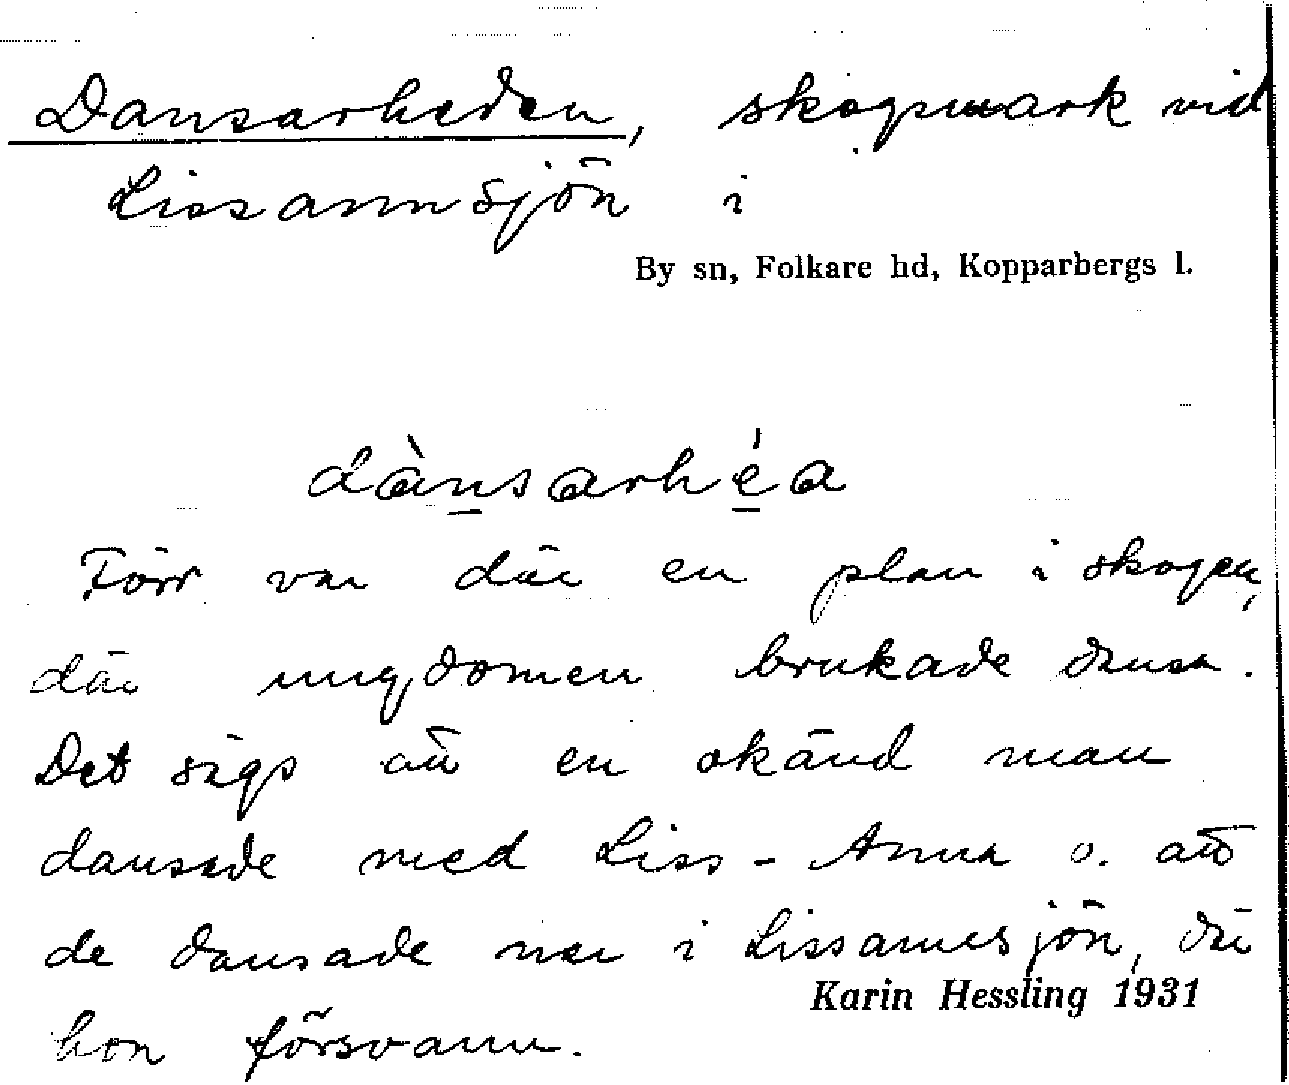 Dansarheden, skogsmark vid
Lissannsjön i
By sn, Folkare hd, Kopparbergs l.
dànsarhéa
Förr var där en plan i skogen,
där ungdomen brukade dansa.
Det sägs att en okänd man
dansade med Liss-Anna o. att
de dansade ner i Lissannsjön, där
Karin Hessling 1931
hon försvann.